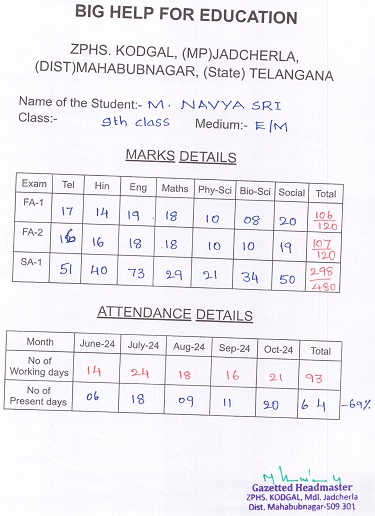 BIG HELP FOR EDUCATION
ZPHS. KODGAL, (MP)JADCHERLA,
(DIST)MAHABUBNAGAR, (State) TELANGANA
Name of the Student:- M. NAVYA SRI
Class:- 9th class Medium:- E/M
MARKS DETAILS
Exam Tel Hin Eng Maths Phy-Sci Bio-Sci Social Total
FA-1 17 14 19 18 10 08 20 106/120
FA-2 16 16 18 18 10 10 19 107/120
SA-1 51 40 73 29 21 34 50 298/480
ATTENDANCE DETAILS
Month June-24 July-24 Aug-24 Sep-24 Oct-24 Total
No of Working days 14 24 18 16 21 93
No of Present days 06 18 09 11 20 64 -69%
Gazetted Headmaster
ZPHS. KODGAL, Mdl. Jadcherla
Dist. Mahabubnagar-509 301